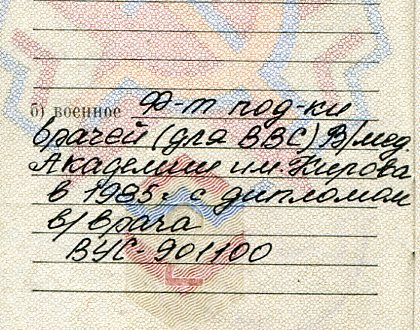 б) военное Ф-т под-ки
врачей (для ВВС) В/мед.
Академии им. Кирова
в 1985г. с дипломом
в/врача
ВУС-901100